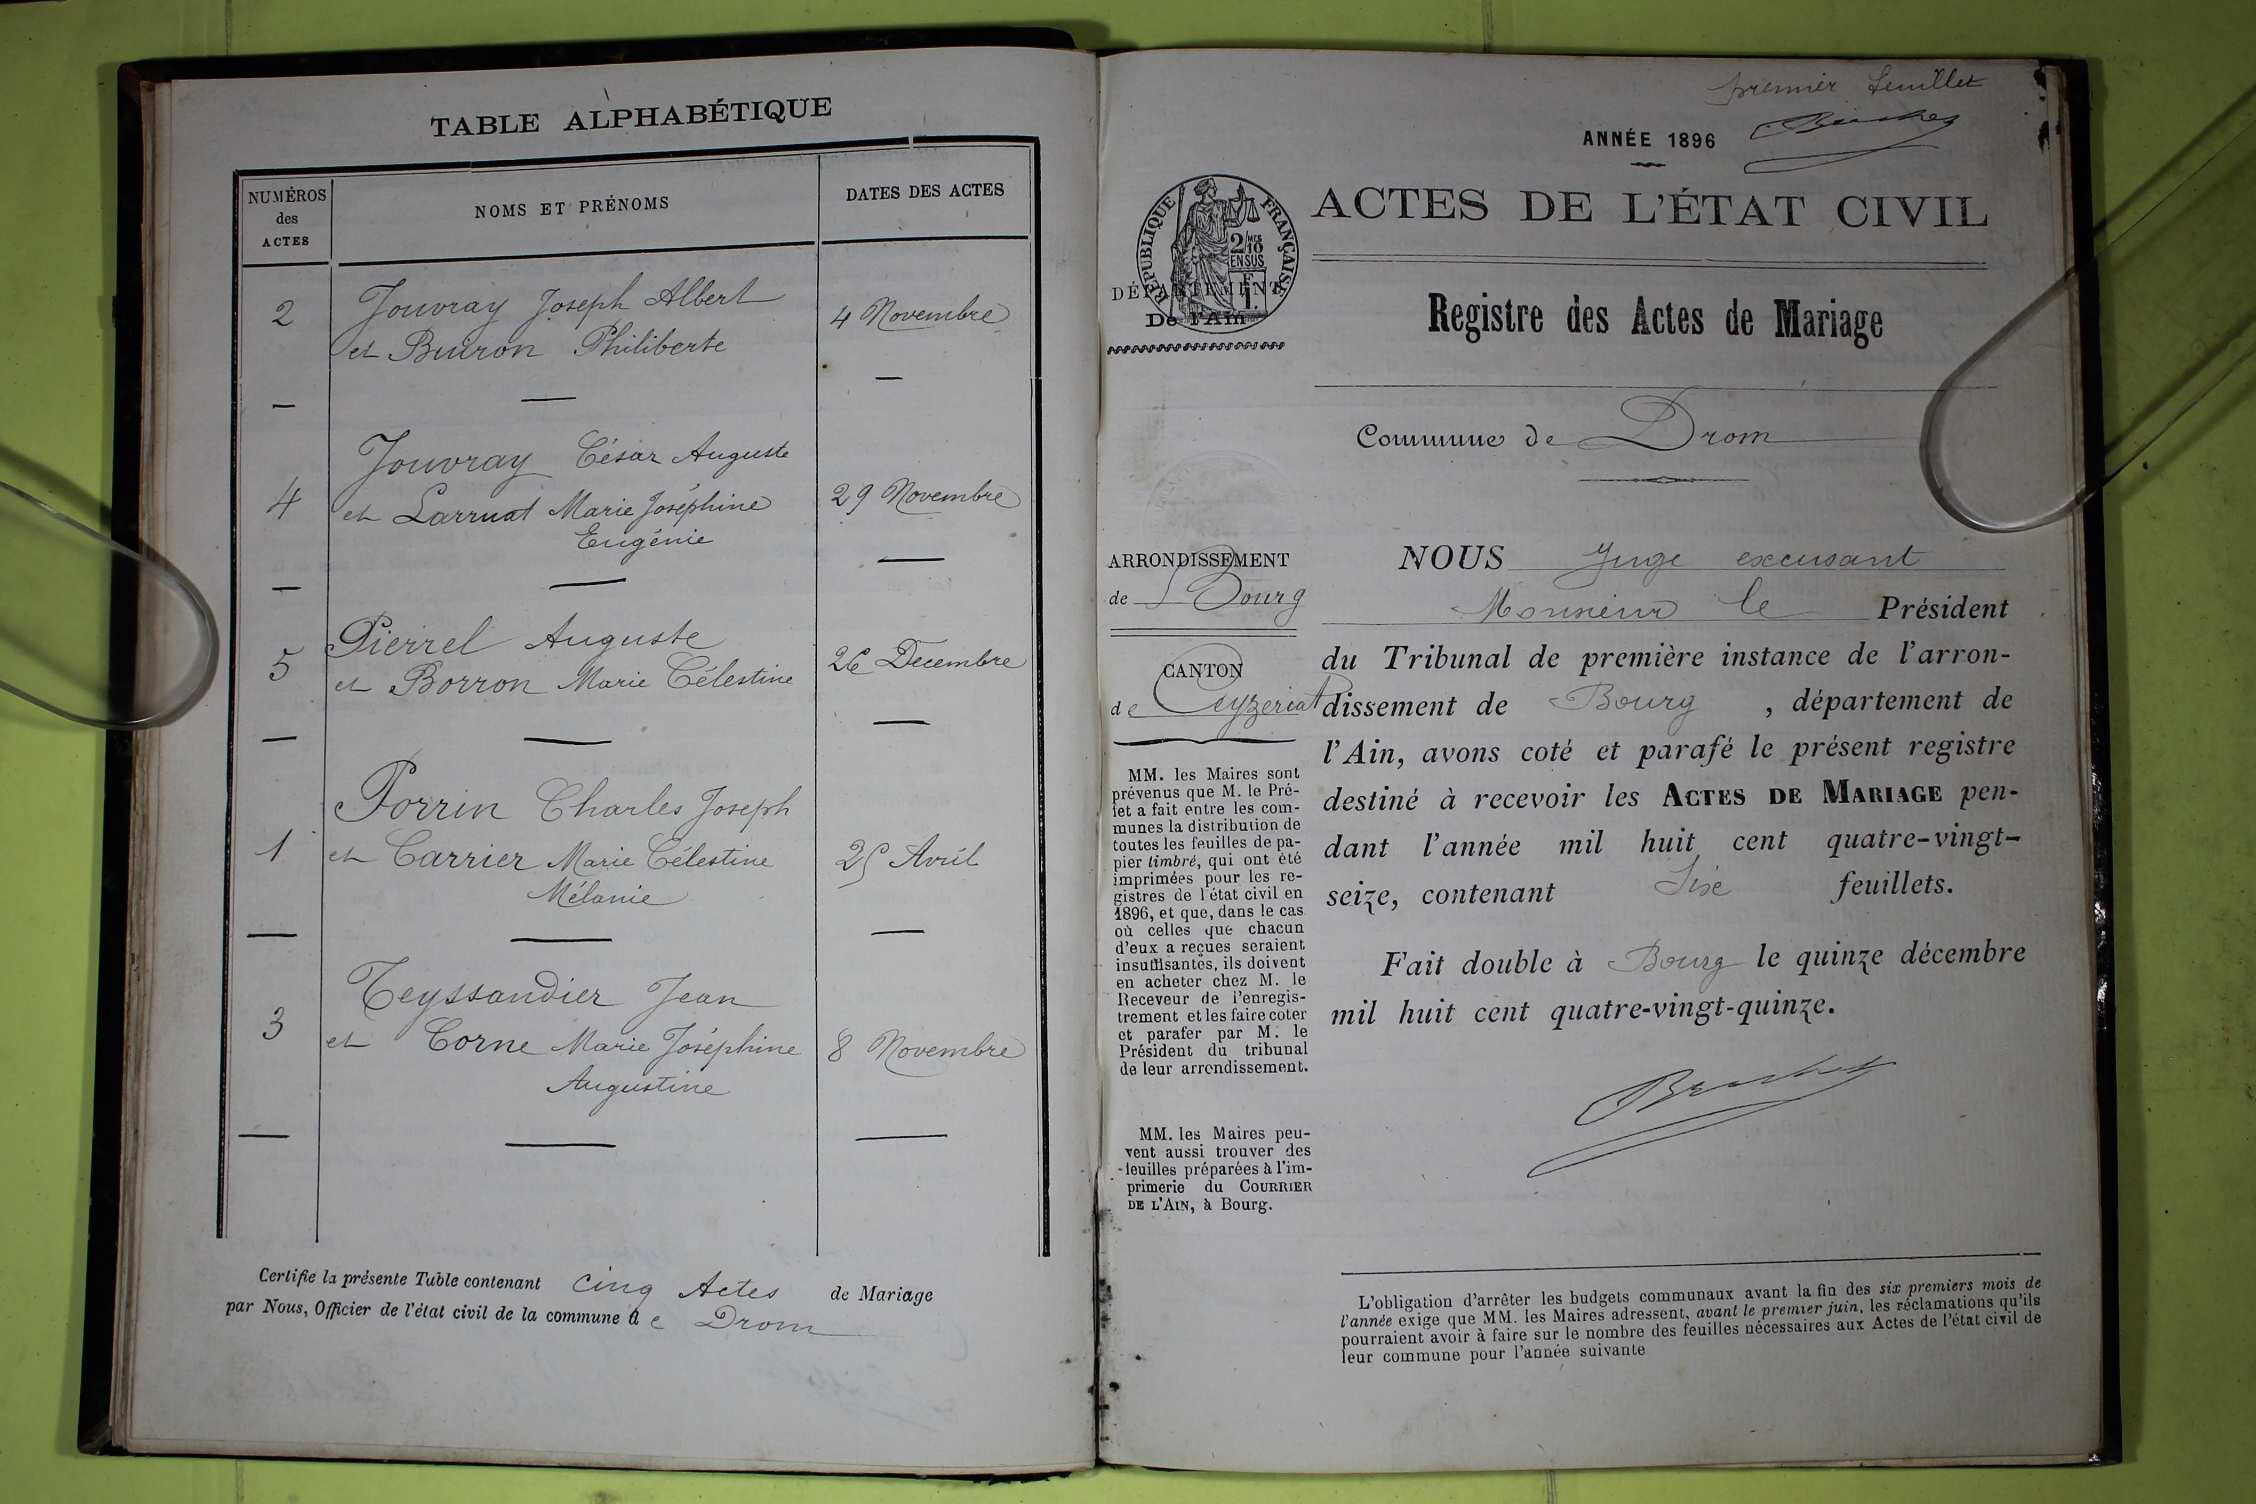 TABLE ALPHABÉTIQUE
NUMÉROS
des
ACTES
NOMS ET PRÉNOMS
DATES DES ACTES
2
Jouvray Joseph Albert
et Buiron Philiberte
4 Novembre
4
Jouvray César Auguste
et Larruat Marie Joséphine
Eugénie
29 Novembre
5
Pierrel Auguste
et Borron Marie Célestine
26 Decembre
1
Porrin Charles Joseph
et Carrier Marie Célestine
Mélanie
25 Avril
3
Teyssandier Jean
et Corne Marie Joséphine
Augustine
8 Novembre
Certifie la présente Table contenant cinq Actes de Mariage
par Nous, Officier de l'état civil de la commune de Drom
premier feuillet
ANNÉE 1896
ACTES DE L'ÉTAT CIVIL
RÉPUBLIQUE FRANÇAISE
2/10
EN SUS
DÉPARTEMENT
De l'Ain
Registre des Actes de Mariage
Commune de Drom
ARRONDISSEMENT
de Bourg
CANTON
de Ceyzeriat
MM. les Maires sont
prévenus que M. le Pré-
fet a fait entre les com-
munes la distribution de
toutes les feuilles de pa-
pier timbré, qui ont été
imprimées pour les re-
gistres de l'état civil en
1896, et que, dans le cas
où celles que chacun
d'eux a reçues seraient
insuffisantes, ils doivent
en acheter chez M. le
Receveur de l'enregis-
trement et les faire coter
et parafer par M. le
Président du tribunal
de leur arrondissement.
MM. les Maires peu-
vent aussi trouver des
feuilles préparées à l'im-
primerie du COURRIER
DE L'AIN, à Bourg.
NOUS Juge excusant
Monsieur le Président
du Tribunal de première instance de l'arron-
dissement de Bourg, département de
l'Ain, avons coté et parafé le présent registre
destiné à recevoir les ACTES DE MARIAGE pen-
dant l'année mil huit cent quatre-vingt-
seize, contenant Six feuillets.
Fait double à Bourg le quinze décembre
mil huit cent quatre-vingt-quinze.
L'obligation d'arrêter les budgets communaux avant la fin des six premiers mois de
l'année exige que MM. les Maires adressent, avant le premier juin, les réclamations qu'ils
pourraient avoir à faire sur le nombre des feuilles nécessaires aux Actes de l'état civil de
leur commune pour l'année suivante